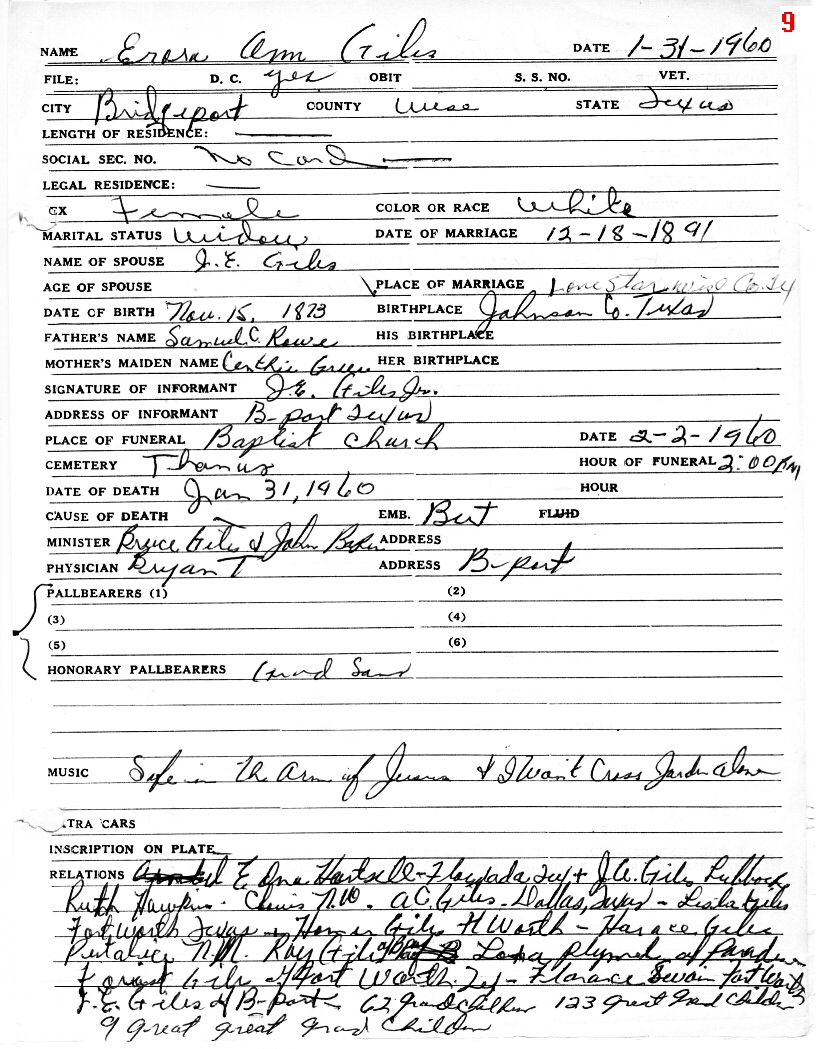 9
NAME Erosa Ann Giles DATE 1-31-1960
FILE: D. C. yes OBIT S. S. NO. VET.
CITY Bridgeport COUNTY Wise STATE Texas
LENGTH OF RESIDENCE:
SOCIAL SEC. NO. No Card
LEGAL RESIDENCE:
EX Female COLOR OR RACE White
MARITAL STATUS Widow DATE OF MARRIAGE 12-18-1891
NAME OF SPOUSE J. E. Giles
AGE OF SPOUSE PLACE OF MARRIAGE Lone Star Wise Co. Tx
DATE OF BIRTH Nov. 15, 1873 BIRTHPLACE Johnson Co. Texas
FATHER'S NAME Samuel C. Rowe HIS BIRTHPLACE
MOTHER'S MAIDEN NAME Green HER BIRTHPLACE
SIGNATURE OF INFORMANT J. E. Giles Jr.
ADDRESS OF INFORMANT B-port Texas
PLACE OF FUNERAL Baptist Church DATE 2-2-1960
CEMETERY Thomas HOUR OF FUNERAL 2:00 PM
DATE OF DEATH Jan 31, 1960 HOUR
CAUSE OF DEATH EMB. Burt FLUID
MINISTER Bruce Giles & John Baker ADDRESS
PHYSICIAN Bryan T ADDRESS B-port
PALLBEARERS (1) (2)
(3) (4)
(5) (6)
HONORARY PALLBEARERS Grand Sons
MUSIC Safe in The Arm of Jesus & I Won't Cross Jordan Alone
TRA CARS
INSCRIPTION ON PLATE
RELATIONS Edna Hartsell - Floydada, Tex + J. A. Giles Lubbock
Ruth Hawkins - Clovis N.M. A.C. Giles - Dallas, Texas - Giles
Fort Worth Texas Homer Giles Ft Worth - Horace Giles
N.M. Ray Giles of Plymel of
Forrest Giles of Fort Worth. Tex - Florance Swain Fort Worth
J. E. Giles of B-port 62 grand children 123 great grand children
9 great great grand children